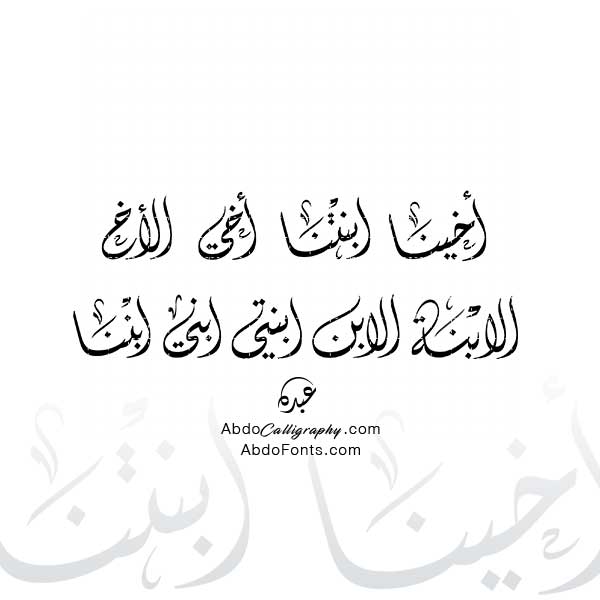 أخينا ابنتنا أخي الأخ
الابنة الابن ابنتي ابني ابننا
عبده
AbdoCalligraphy.com
AbdoFonts.com
أخينا ابنتنا